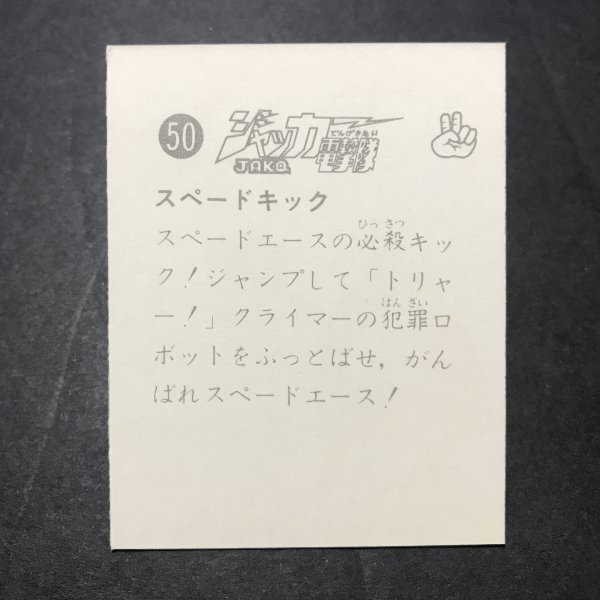 50
ジャッカー電撃隊
でんげきたい
JAKQ
スペードキック
ひっさつ
スペードエースの必殺キッ
ク!ジャンプして「トリャ
はんざい
ー!」クライマーの犯罪ロ
ボットをふっとばせ,がん
ばれスペードエース!